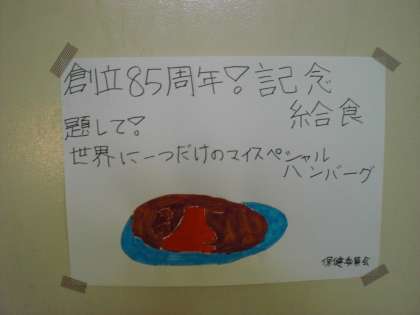 創立85周年！記念
給食
題して！
世界に一つだけのマイスペシャル
ハンバーグ
保健委員会